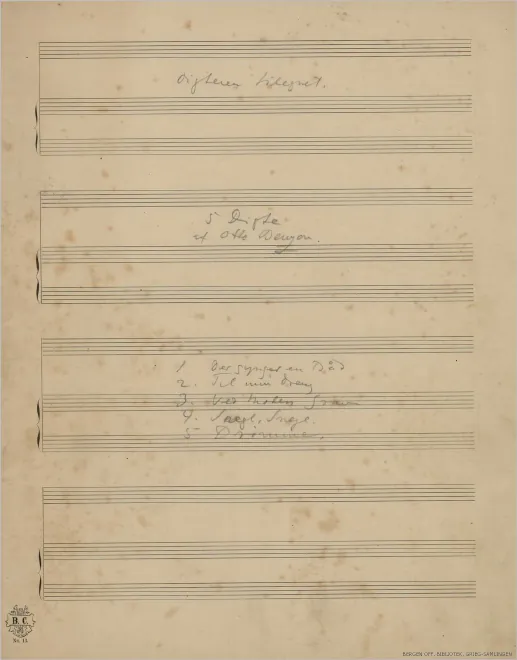 Digteren tilegnet.
5 Digte
af Otto Benzon.
1 Der gynger en Båd
2. Til min Dreng
3. Ved Moders Grav
4. Snegl, Snegl.
5 Drömme.
B. C.
BERGEN OFF. BIBLIOTEK, GRIEG-SAMLINGEN